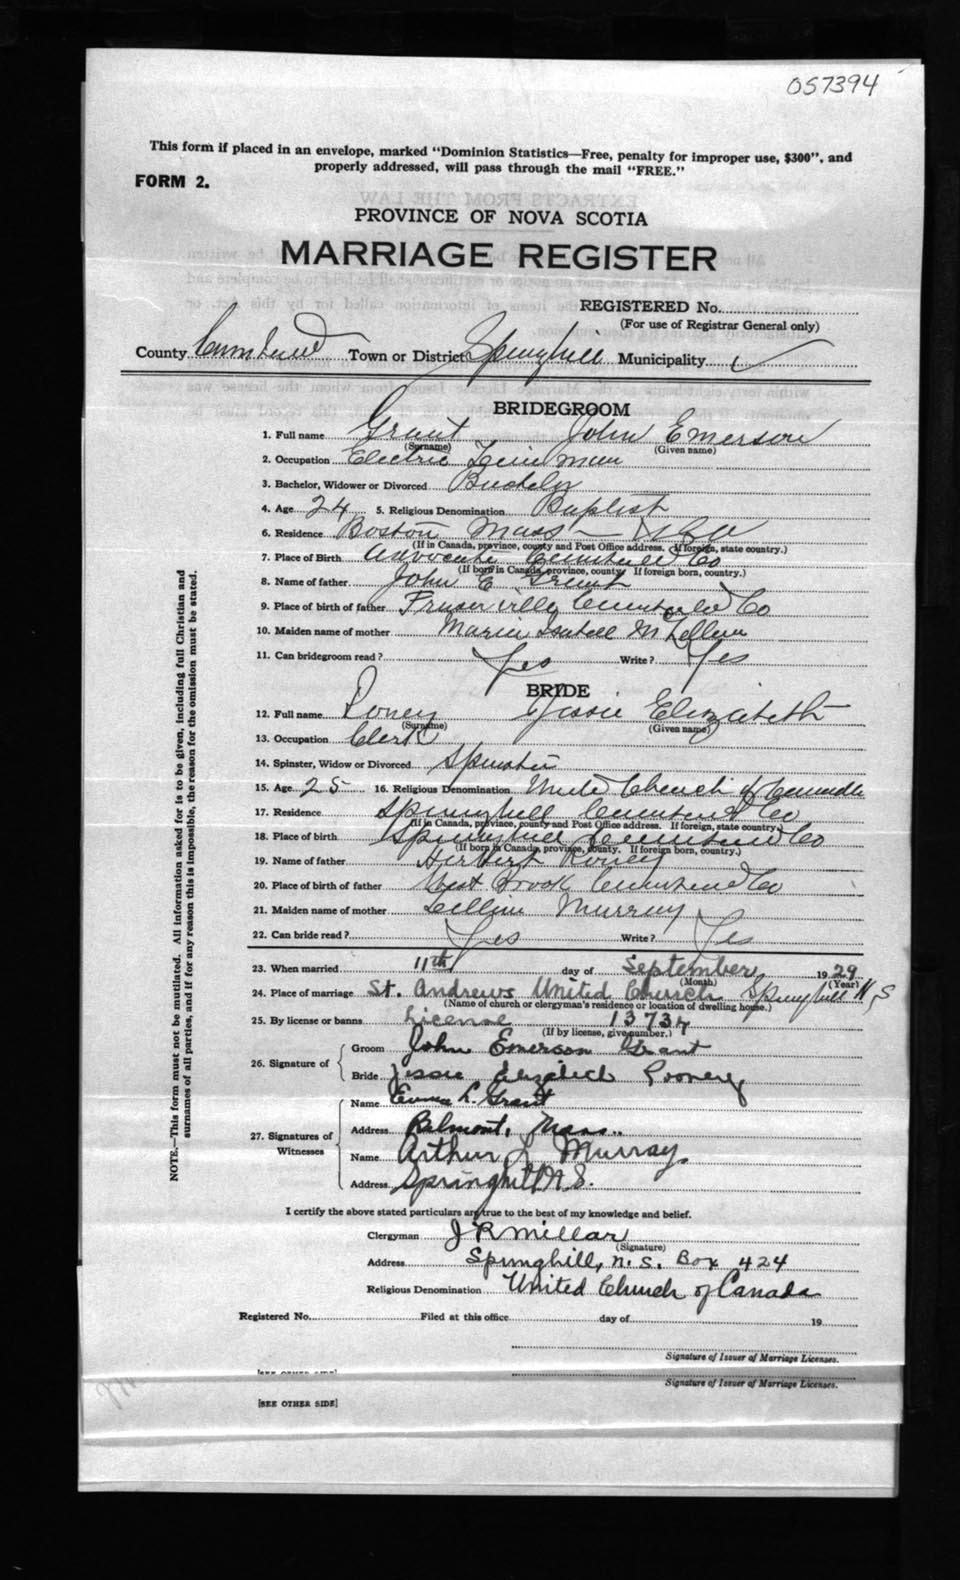 057394
This form if placed in an envelope, marked "Dominion Statistics—Free, penalty for improper use, $300", and
properly addressed, will pass through the mail "FREE."
FORM 2.
PROVINCE OF NOVA SCOTIA
MARRIAGE REGISTER
REGISTERED No.
(For use of Registrar General only)
County Town or District Springhill Municipality
BRIDEGROOM
1. Full name Grant John Emerson
(Surname) (Given name)
2. Occupation Electric
3. Bachelor, Widower or Divorced Bachelor
4. Age 24 5. Religious Denomination Baptist
6. Residence Boston Mass USA
(If in Canada, province, county and Post Office address. If foreign, state country.)
7. Place of Birth Advocate Co
(If born in Canada, province, county. If foreign born, country.)
8. Name of father John E Grant
9. Place of birth of father Co
10. Maiden name of mother
11. Can bridegroom read? Yes Write? Yes
BRIDE
12. Full name Jessie Elizabeth
(Surname) (Given name)
13. Occupation Clerk
14. Spinster, Widow or Divorced Spinster
15. Age 25 16. Religious Denomination Church of
17. Residence Springhill Co
(If in Canada, province, county and Post Office address. If foreign, state country.)
18. Place of birth Springhill Co
(If born in Canada, province, county. If foreign born, country.)
19. Name of father Herbert Roney
20. Place of birth of father West Brook Co
21. Maiden name of mother Murray
22. Can bride read? Yes Write? Yes
23. When married 11th day of September 1929
(Month) (Year)
24. Place of marriage St. Andrews United Church Springhill N.S
(Name of church or clergyman's residence or location of dwelling house.)
25. By license or banns License 13734
(If by license, give number.)
26. Signature of
Groom John Emerson Grant
Bride Jessie Elizabeth
27. Signatures of Witnesses
Name Emma L. Grant
Address Belmont, Mass.
Name Arthur L Murray.
Address Springhill N.S.
I certify the above stated particulars are true to the best of my knowledge and belief.
Clergyman J R Millar
(Signature)
Address Springhill, N.S. Box 424
Religious Denomination United Church of Canada
Registered No. Filed at this office day of 19
Signature of Issuer of Marriage Licenses.
Signature of Issuer of Marriage Licenses.
[SEE OTHER SIDE]
NOTE.—This form must not be mutilated. All information asked for is to be given, including full Christian and
surnames of all parties, and if for any reason this is impossible, the reason for the omission must be stated.